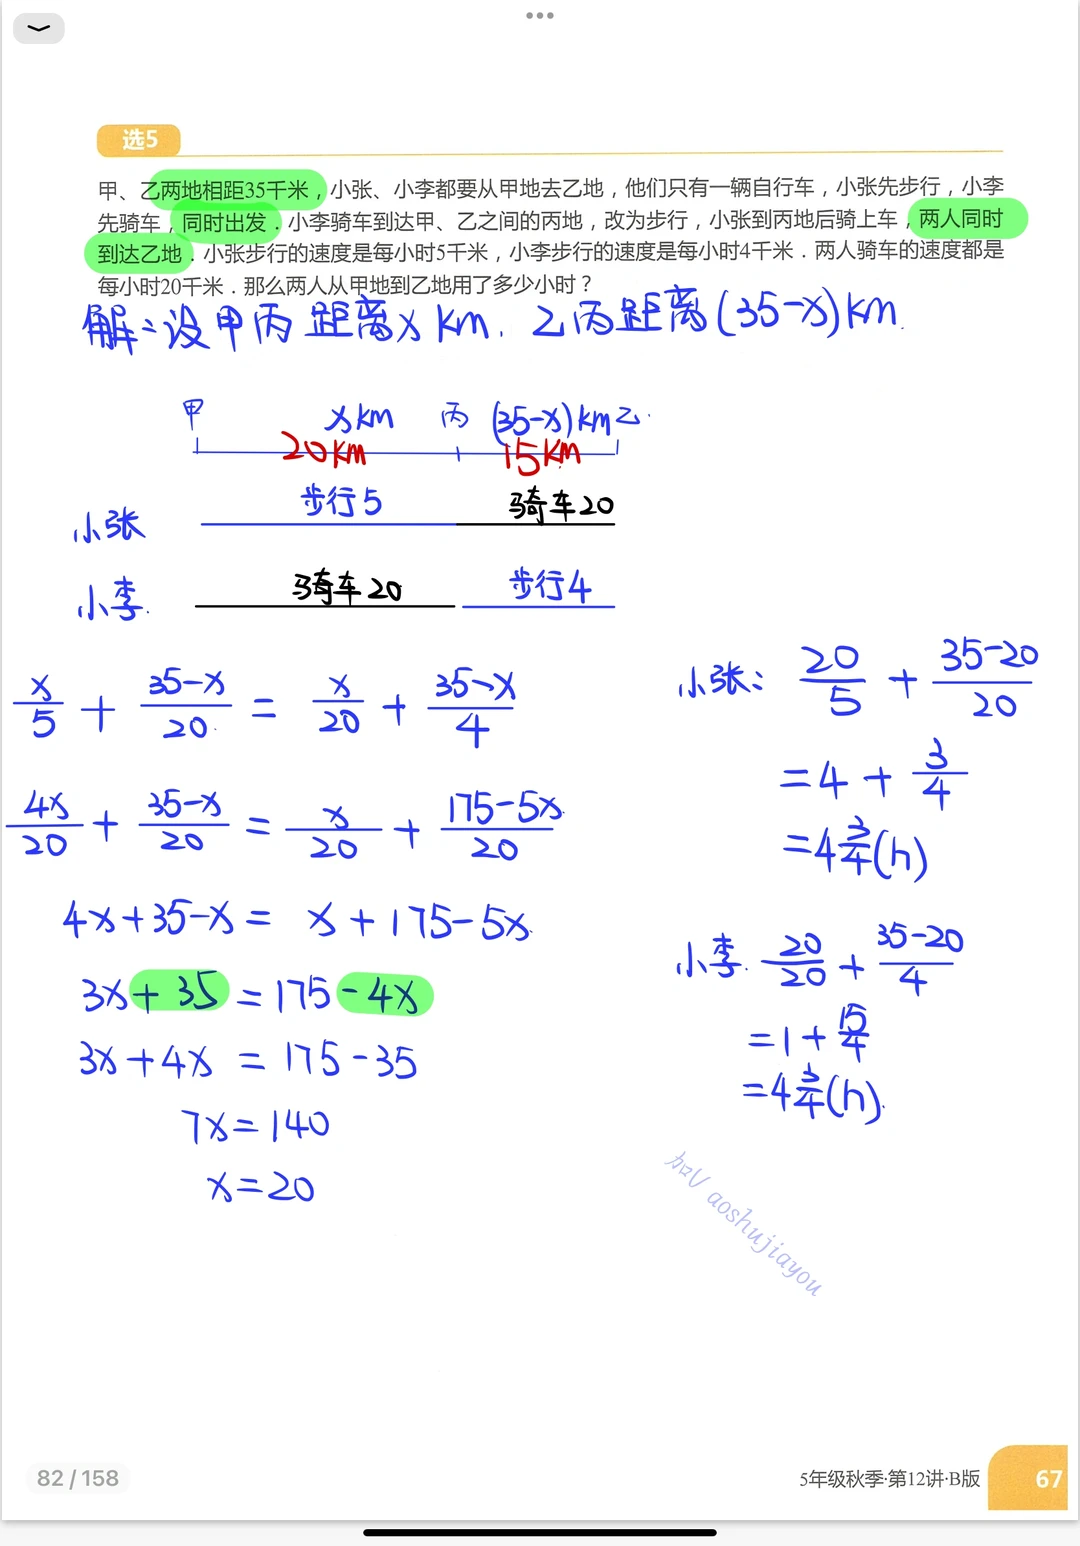 选5
甲、乙两地相距35千米，小张、小李都要从甲地去乙地，他们只有一辆自行车，小张先步行，小李
先骑车，同时出发．小李骑车到达甲、乙之间的丙地，改为步行，小张到丙地后骑上车，两人同时
到达乙地．小张步行的速度是每小时5千米，小李步行的速度是每小时4千米．两人骑车的速度都是
每小时20千米．那么两人从甲地到乙地用了多少小时？
解：设甲丙距离x km. 乙丙距离(35-x)km.
甲 x km 丙 (35-x)km 乙.
20km 15km
步行5 骑车20
小张
骑车20 步行4
小李.
x/5 + (35-x)/20 = x/20 + (35-x)/4
4x/20 + (35-x)/20 = x/20 + (175-5x)/20
4x+35-x = x+175-5x
3x+35 = 175-4x
3x+4x = 175-35
7x=140
x=20
小张: 20/5 + (35-20)/20
=4+3/4
=4 3/4(h)
小李. 20/20 + (35-20)/4
=1+15/4
=4 3/4(h).
加V aoshujiayou
82 / 158
5年级秋季·第12讲·B版
67